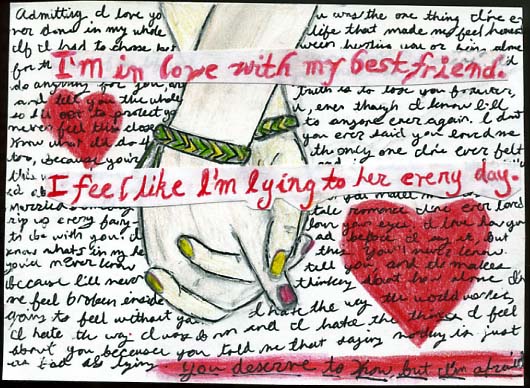 Admitting I love yo u was the one thing I've e
ver done in my whole life that made me feel hones
If I had to chose bet ween hurting you or bein alone
for th
I'm in love with my best friend.
do anything for you, truth is to lose you forever,
and tell you the whole u, even though I know I'll
so I'll to protect yo to anyone ever again. I don't
never feel this close you ever said you loved me
know what to do th only one I've ever felt
too, because you're
I feel like I'm lying to her every day.
rip us every fairy tale romance I've ever
to do with you. I love your eyes I love how you
know what's in my he ad before I say it, but
you'll never know this. You'll never know.
because I'll never tell you and it makes
me feel broken inside thinking about how alone I'm
going to feel without you. I hate the way the world works,
I hate the way I was born and I hate the things I feel
about you because you told me that saying nothing is just
as bad as lying. You deserve to know but I'm afraid